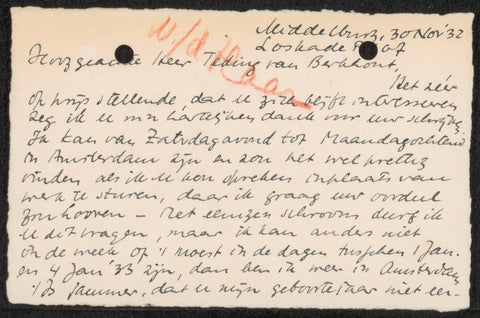 Middelburg, 30 Nov '32
Loskade
v/d Haar
Hooggeachte Heer Teding van Berkhout,
Het zéér
op prijs stellende, dat u zich blijft interesseeren
zeg ik u m'n hartelijken dank voor uw schrijven.
Ik kan van Zaterdagavond tot Maandagochtend
in Amsterdam zijn en zou het wel prettig
vinden als ik u kon spreken inplaats van
werk te sturen, daar ik graag uw oordeel
zou hooren – Met eenigen schroom durf ik
u dit vragen, maar ik kan anders niet
in de week of 't moest in de dagen tusschen 1 Jan.
en 4 Jan 33 zijn, dan ben ik weer in Amsterdam
't Is jammer, dat u mijn geboortejaar niet eer-